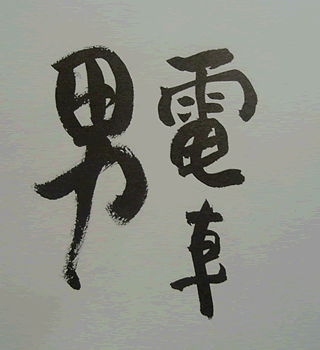 電車
男